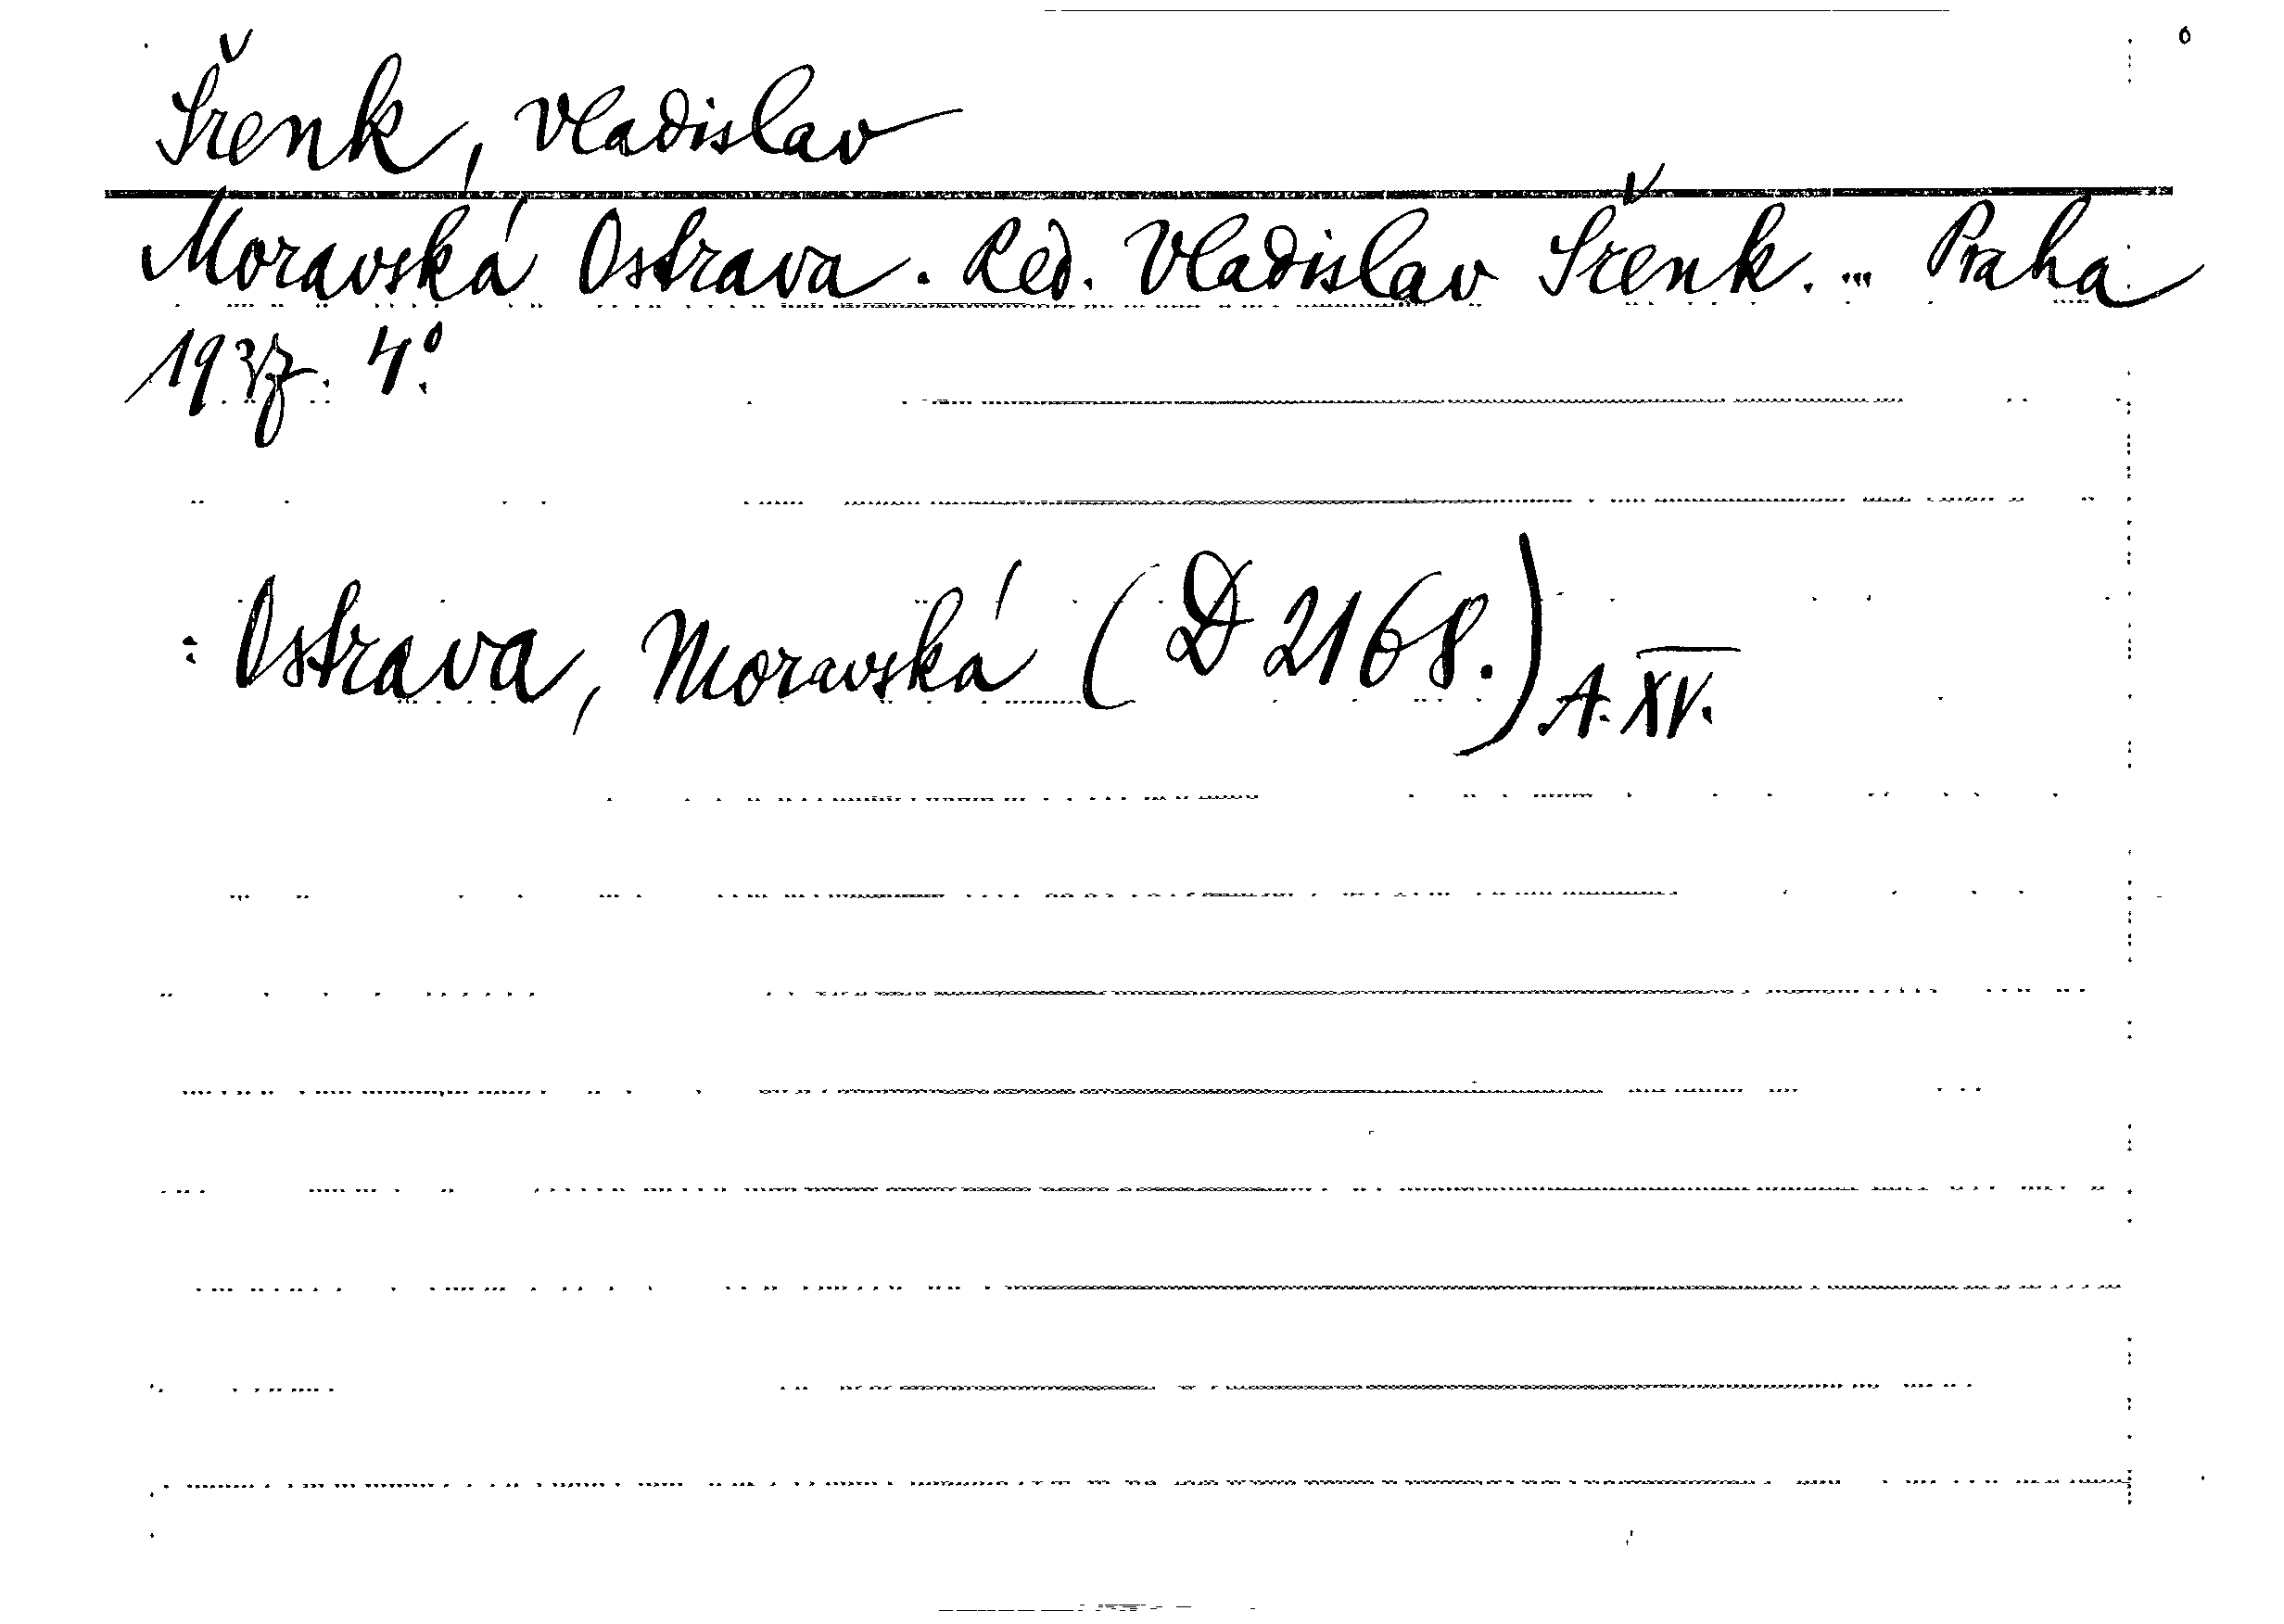 Šrenk, Vladislav
Moravská Ostrava. Red. Vladislav Šrenk. ... Praha
1937. 4°.
: Ostrava, Moravská (D 2168.) A. XV.